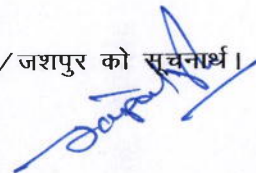 /जशपुर को सूचनार्थ।